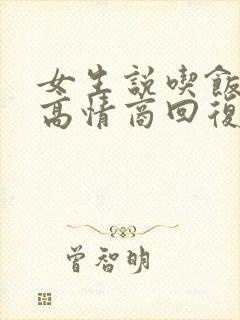 女生説喫飯
高情商回復
曾智明